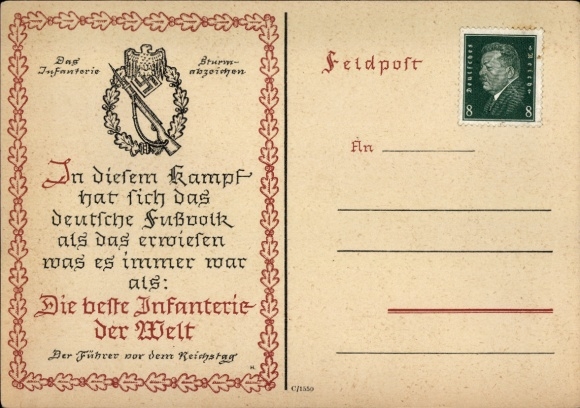 Das
Infanterie
Sturm-
abzeichen
In diesem Kampf
hat sich das
deutsche Fußvolk
als das erwiesen
was es immer war
als:
Die beste Infanterie
der Welt
Der Führer vor dem Reichstag
H.
C/1550
Feldpost
An
Deutsches
Reich
8 8